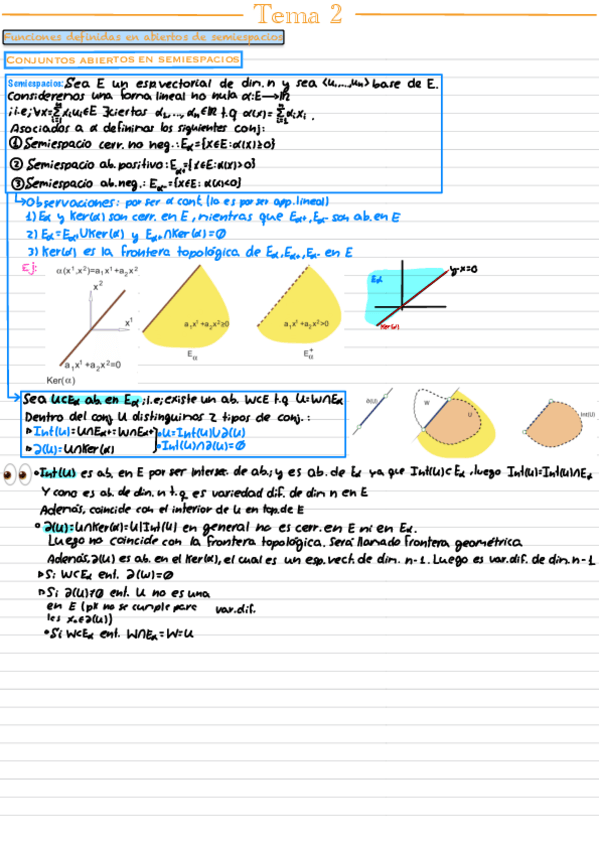 Tema 2
Funciones definidas en abiertos de semiespacios
CONJUNTOS ABIERTOS EN SEMIESPACIOS
Semiespacios: Sea E un esp.vectorial de dim. n y sea <u₁,...,uₙ> base de E.
Consideremos una forma lineal no nula α:E→ℝ
i.e; ∀x=∑xᵢuᵢ∈E ∃ciertos α₁,...,αₙ∈ℝ t.q α(x)=∑αᵢxᵢ.
Asociados a α definimos los siguientes conj:
① Semiespacio cerr. no neg.: Eα={x∈E:α(x)≥0}
② Semiespacio ab. positivo: Eα+={x∈E:α(x)>0}
③ Semiespacio ab. neg.: Eα-={x∈E: α(x)<0}
Observaciones: por ser α cont. (lo es por ser app. lineal)
1) Eα y Ker(α) son cerr. en E, mientras que Eα+, Eα- son ab. en E
2) Eα=Eα+∪Ker(α) y Eα+∩Ker(α)=∅
3) Ker(α) es la frontera topológica de Eα, Eα+, Eα- en E
Ej:
α(x¹,x²)=a₁x¹+a₂x²
x²
x¹
a₁x¹+a₂x²=0
Ker(α)
a₁x¹+a₂x²≥0
Eα
a₁x¹+a₂x²>0
Eα⁺
Eα
y-x=0
Ker(α)
Sea U⊂Eα ab. en Eα; i.e; existe un ab. W⊂E t.q U=W∩Eα
Dentro del conj U distinguimos 2 tipos de conj.:
▹ Int(U)=U∩Eα+=W∩Eα+
▹ ∂(U)=U∩Ker(α)
•U=Int(U)∪∂(U)
•Int(U)∩∂(U)=∅
∂(U)
W
U
Int(U)
• Int(U) es ab. en E por ser intersec. de ab.; y es ab. de Eα ya que Int(U)⊂Eα, luego Int(U)=Int(U)∩Eα
Y como es ab. de dim. n t.q es variedad dif. de dim n en E
Además, coincide con el interior de U en top. de E
• ∂(U)=U∩Ker(α)=U\Int(U) en general no es cerr. en E ni en Eα.
Luego no coincide con la frontera topológica. Será llamado frontera geométrica
Además, ∂(U) es ab. en el Ker(α), el cual es un esp.vect. de dim. n-1. Luego es var.dif. de dim. n-1
▹ Si W⊂Eα ent. ∂(W)=∅
▹ Si ∂(U)≠∅ ent. U no es una
en E (pk no se cumple para var.dif.
los x₀∈∂(U))
• Si W⊂Eα ent. W∩Eα=W=U